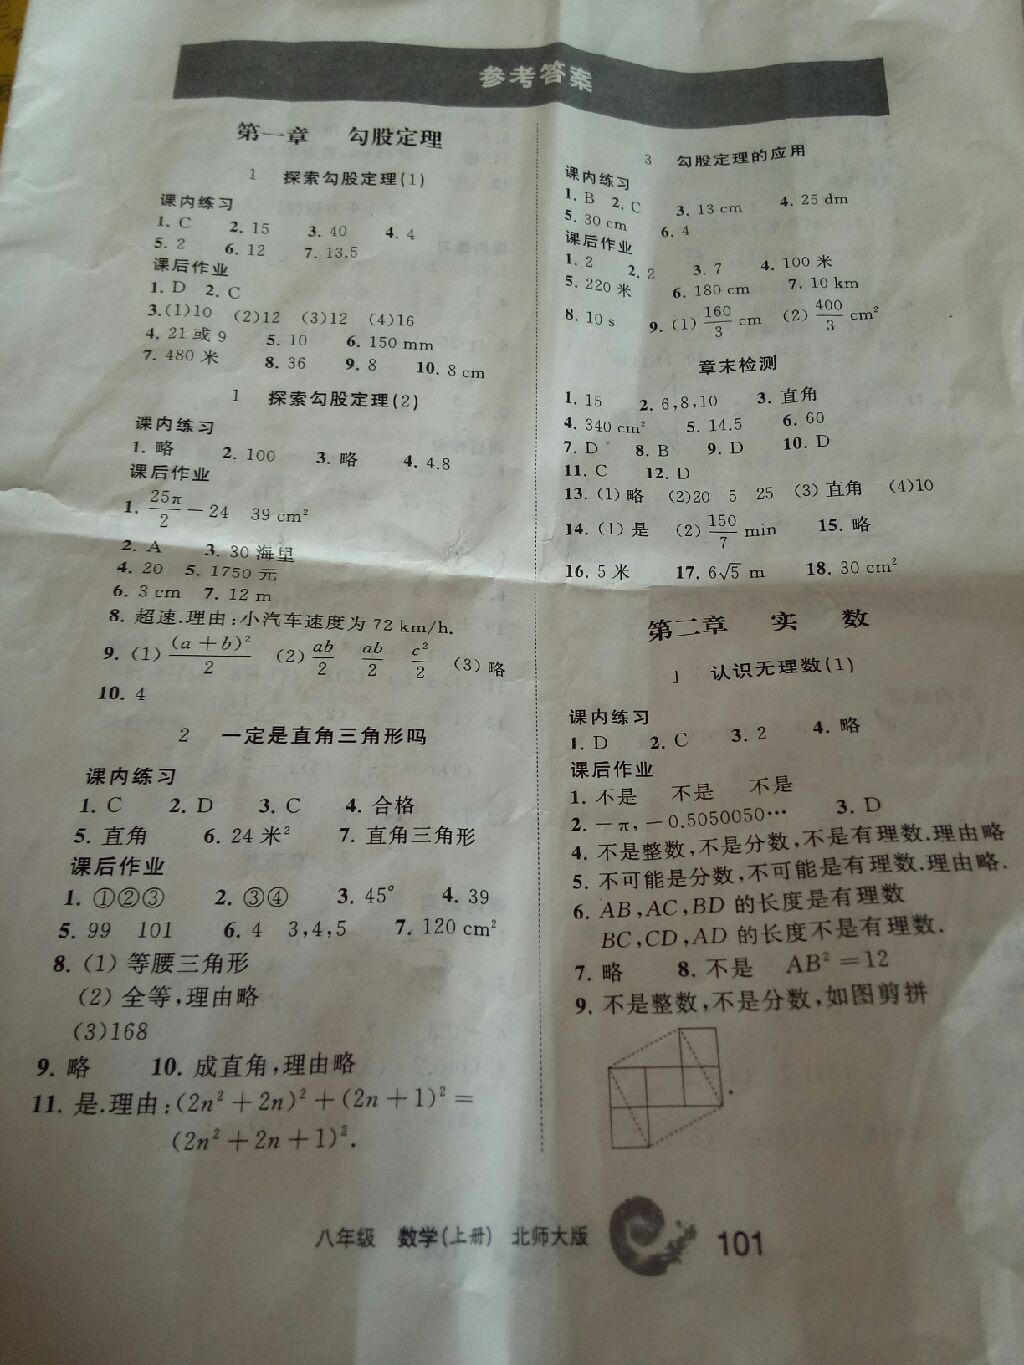 参考答案
第一章 勾股定理
1 探索勾股定理(1)
课内练习
1. C 2. 15 3. 40 4. 4
5. 2 6. 12 7. 13.5
课后作业
1. D 2. C
3.(1)10 (2)12 (3)12 (4)16
4. 21或9 5. 10 6. 150 mm
7. 480米 8. 36 9. 8 10. 8 cm
1 探索勾股定理(2)
课内练习
1. 略 2. 100 3. 略 4. 4.8
课后作业
1. 25π/2 − 24 39 cm²
2. A 3. 30海里
4. 20 5. 1750元
6. 3 cm 7. 12 m
8. 超速.理由:小汽车速度为72 km/h.
9. (1) (a+b)²/2 (2) ab/2 ab/2 c²/2 (3) 略
10. 4
2 一定是直角三角形吗
课内练习
1. C 2. D 3. C 4. 合格
5. 直角 6. 24米² 7. 直角三角形
课后作业
1. ①②③ 2. ③④ 3. 45° 4. 39
5. 99 101 6. 4 3,4,5 7. 120 cm²
8. (1) 等腰三角形
(2) 全等,理由略
(3)168
9. 略 10. 成直角,理由略
11. 是.理由:(2n²+2n)²+(2n+1)²=
(2n²+2n+1)².
3 勾股定理的应用
课内练习
1. B 2. C 3. 13 cm 4. 25 dm
5. 30 cm 6. 4
课后作业
1. 2 2. 2 3. 7 4. 100米
5. 220米 6. 180 cm 7. 10 km
8. 10 s 9. (1) 160/3 cm (2) 400/3 cm²
章末检测
1. 15 2. 6,8,10 3. 直角
4. 340 cm² 5. 14.5 6. 60
7. D 8. B 9. D 10. D
11. C 12. D
13. (1) 略 (2)20 5 25 (3) 直角 (4)10
14. (1) 是 (2) 150/7 min 15. 略
16. 5米 17. 6√5 m 18. 30 cm²
第二章 实数
1 认识无理数(1)
课内练习
1. D 2. C 3. 2 4. 略
课后作业
1. 不是 不是 不是
2. −π,−0.5050050… 3. D
4. 不是整数,不是分数,不是有理数.理由略
5. 不可能是分数,不可能是有理数.理由略.
6. AB,AC,BD的长度是有理数
BC,CD,AD的长度不是有理数.
7. 略 8. 不是 AB²=12
9. 不是整数,不是分数,如图剪拼
八年级 数学(上册) 北师大版 101